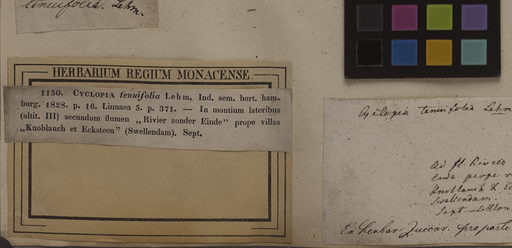 tenuifolia. Lehm.
HERBARIUM REGIUM MONACENSE.
1150. CYCLOPIA tenuifolia Lehm. Ind. sem. hort. ham-
burg. 1828. p. 16. Linnaea 5. p. 371. — In montium lateribus
(altit. III) secundum flumen „Rivier zonder Einde" prope villas
„Knoblauch et Ecksteen" (Swellendam). Sept.
Cyclopia tenuifolia Lehm
ad fl. Rivier
Ende prope
Knoblauch &
Swellendam.
Sept.
Ex herbar. Zuccar. pro parte